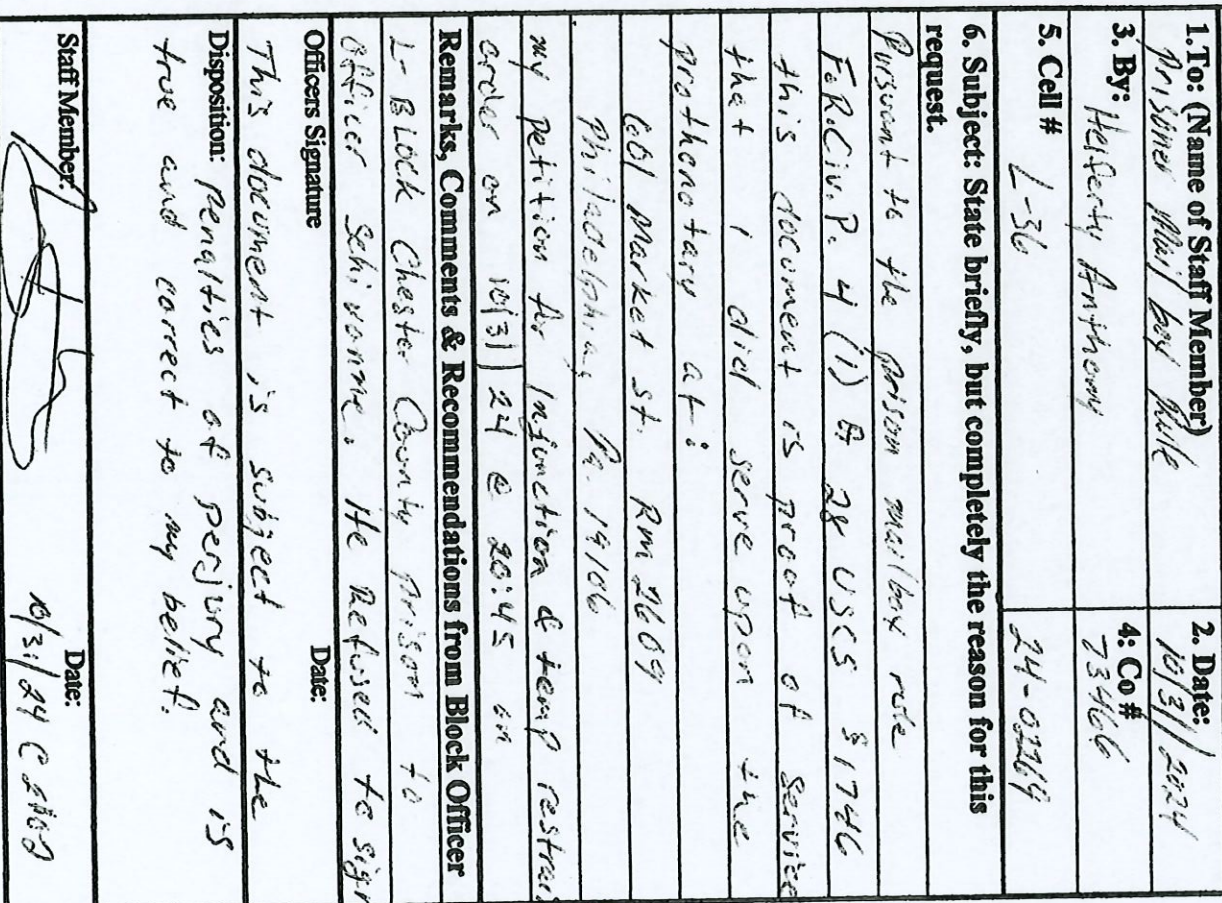 1. To: (Name of Staff Member)
Prisoner Mail box Rule
2. Date:
10/31/2024
3. By: Anthony
4: Co#
73466
5. Cell # L-36
24-03269
6. Subject: State briefly, but completely the reason for this
request.
Pursuant to the prison mailbox rule
F.R.Civ.P. 4 (1) & 28 USCS § 1746
this document is proof of service
that i did serve upon the
prothonotary at:
601 Market St. Rm 2609
Philadelphia, Pa. 19106
my petition for Injunction & temp restrain
order on 10/31/24 @ 20:45 on
Remarks, Comments & Recommendations from Block Officer
L-Block Chester County Prison to
Officer Schivonne. He Refused to sign
Officers Signature Date:
This document is subject to the
Disposition: penalties of perjury and is
true and correct to my belief.
Staff Member: Date:
10/31/24 @